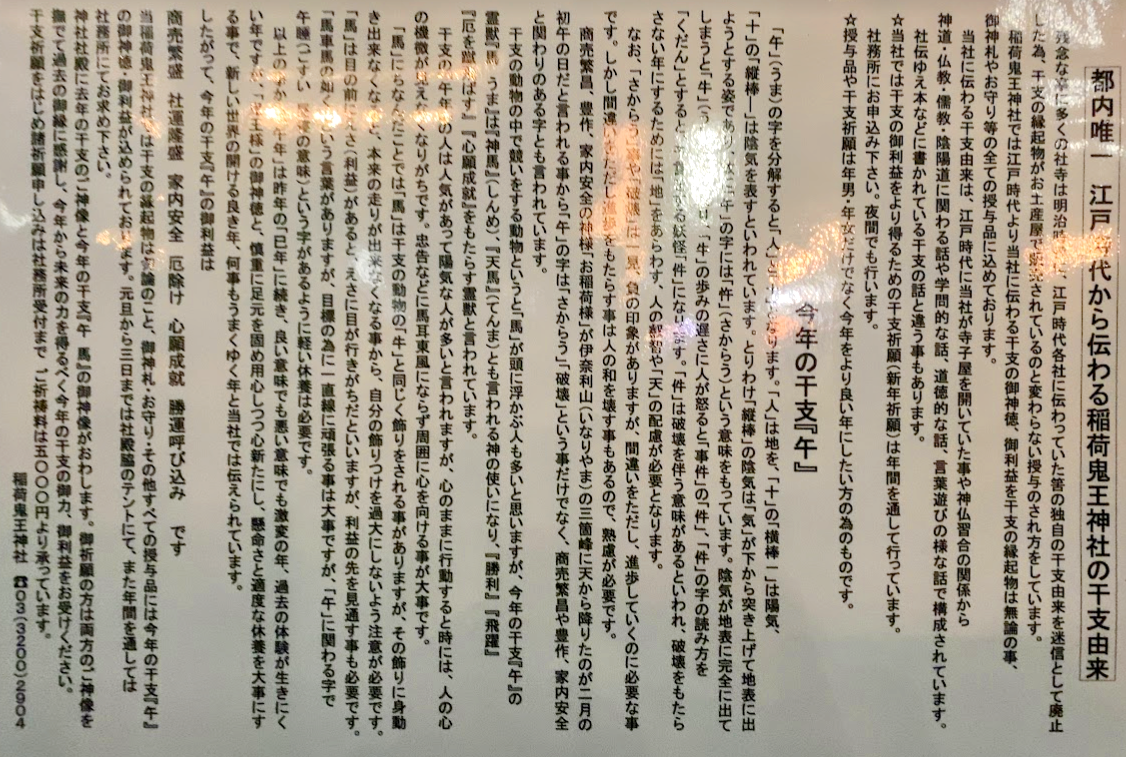 都内唯一 江戸時代から伝わる稲荷鬼王神社の干支由来
残念な事に多くの社寺は明治時に、江戸時代各社に伝わっていた筈の独自の干支由来を迷信として廃止
した為、干支の縁起物がお土産屋で販売されているのと変わらない授与のされ方をしています。
稲荷鬼王神社では江戸時代より当社に伝わる干支の御神徳、御利益を干支の縁起物は無論の事、
御神札やお守り等の全ての授与品に込めております。
当社に伝わる干支由来は、江戸時代に当社が寺子屋を開いていた事や神仏習合の関係から
神道・仏教・儒教・陰陽道に関わる話や学問的な話、道徳的な話、言葉遊びの様な話で構成されています。
社伝ゆえ本などに書かれている干支の話と違う事もあります。
☆当社では干支の御利益をより得るための干支祈願(新年祈願)は年間を通して行っています。
社務所にお申込み下さい。夜間でも行います。
☆授与品や干支祈願は年男・年女だけでなく今年をより良い年にしたい方の為のものです。
今年の干支『午』
「午」(うま)の字を分解すると「人」と「十」になります。「人」は地を、「十」の「横棒一」は陽気、
「十」の「縦棒―」は陰気を表すといわれています。とりわけ「縦棒」の陰気は「気」が下から突き上げて地表に出
ようとする姿であり「午」の字には「忤」(さからう)という意味をもっています。陰気が地表に完全に出て
しまうと「牛」(う「牛」の歩みの遅さに人が怒ると「事件」の「件」、「件」の字の読み方を
「くだん」とすると する妖怪「件」になります。「件」は破壊を伴う意味があるといわれ、破壊をもたら
さない年にするためには「地」をあらわす、人の叡智や「天」の配慮が必要となります。
なお、「さからう」事や「破壊」は一見、負の印象がありますが、間違いをただし、進歩していくのに必要な事
です。しかし間違いをただし進歩をもたらす事は人の和を壊す事もあるので、熟慮が必要です。
商売繁昌、豊作、家内安全の神様「お稲荷様」が伊奈利山(いなりやま)の三箇峰に天から降りたのが二月の
初午の日だと言われる事から「午」の字は「さからう」「破壊」という事だけでなく、商売繁昌や豊作、家内安全
と関わりのある字とも言われています。
干支の動物の中で競いをする動物というと「馬」が頭に浮かぶ人も多いと思いますが、今年の干支『午』の
霊獣『馬 うま』は『神馬』(しんめ)、『天馬』(てんま)とも言われる神の使いになり、『勝利』『飛躍』
『厄を蹴飛ばす』『心願成就』をもたらす霊獣と言われています。
干支の『午年』の人は人気があって陽気な人が多いと言われますが、心のままに行動すると時には、人の心
の機微が見えなくなりがちです。忠告などに馬耳東風にならず周囲に心を向ける事が大事です。
「馬」にちなんだことでは、「馬」は干支の動物の「牛」と同じく飾りをされる事がありますが、その飾りに身動
き出来なくなると、本来の走りが出来なくなる事から、自分の飾りつけを過大にしないよう注意が必要です。
「馬」は目の前にえさ(利益)があると、えさに目が行きがちだといいますが、利益の先を見通す事も必要です。
「馬車馬の如く」という言葉がありますが、目標の為に一直線に頑張る事は大事ですが、「午」に関わる字で
「午睡」(ごすい、昼寝の意味)という字があるように軽い休養は必要です。
以上の事から「午年」は昨年の「巳年」に続き、良い意味でも悪い意味でも激変の年、過去の体験が生きにく
い年ですが、「鬼王様」の御神徳と、慎重に足元を固め用心しつつ心新たにし、懸命さと適度な休養を大事にす
る事で、新しい世界の開ける良き年、何事もうまくゆく年と当社では伝えられています。
したがって、今年の干支『午』の御利益は
商売繁盛 社運隆盛 家内安全 厄除け 心願成就 勝運呼び込み です
当稲荷鬼王神社では干支の縁起物は勿論のこと、御神札・お守り・その他すべての授与品には今年の干支『午』
の御神徳・御利益が込められております。元旦から三日までは社殿脇のテントにて、また年間を通しては
社務所にてお求め下さい。
神社社殿に去年の干支のご神像と今年の干支『午 馬』の御神像がおわします。御祈願の方は両方のご神像を
撫でて過去の御縁に感謝し、今年から未来の力を得るべく今年の干支の御力、御利益をお受けください。
干支祈願をはじめ諸祈願申し込みは社務所受付まで、ご祈祷料は五〇〇〇円より承っています。
稲荷鬼王神社 ☎03(3200)2904